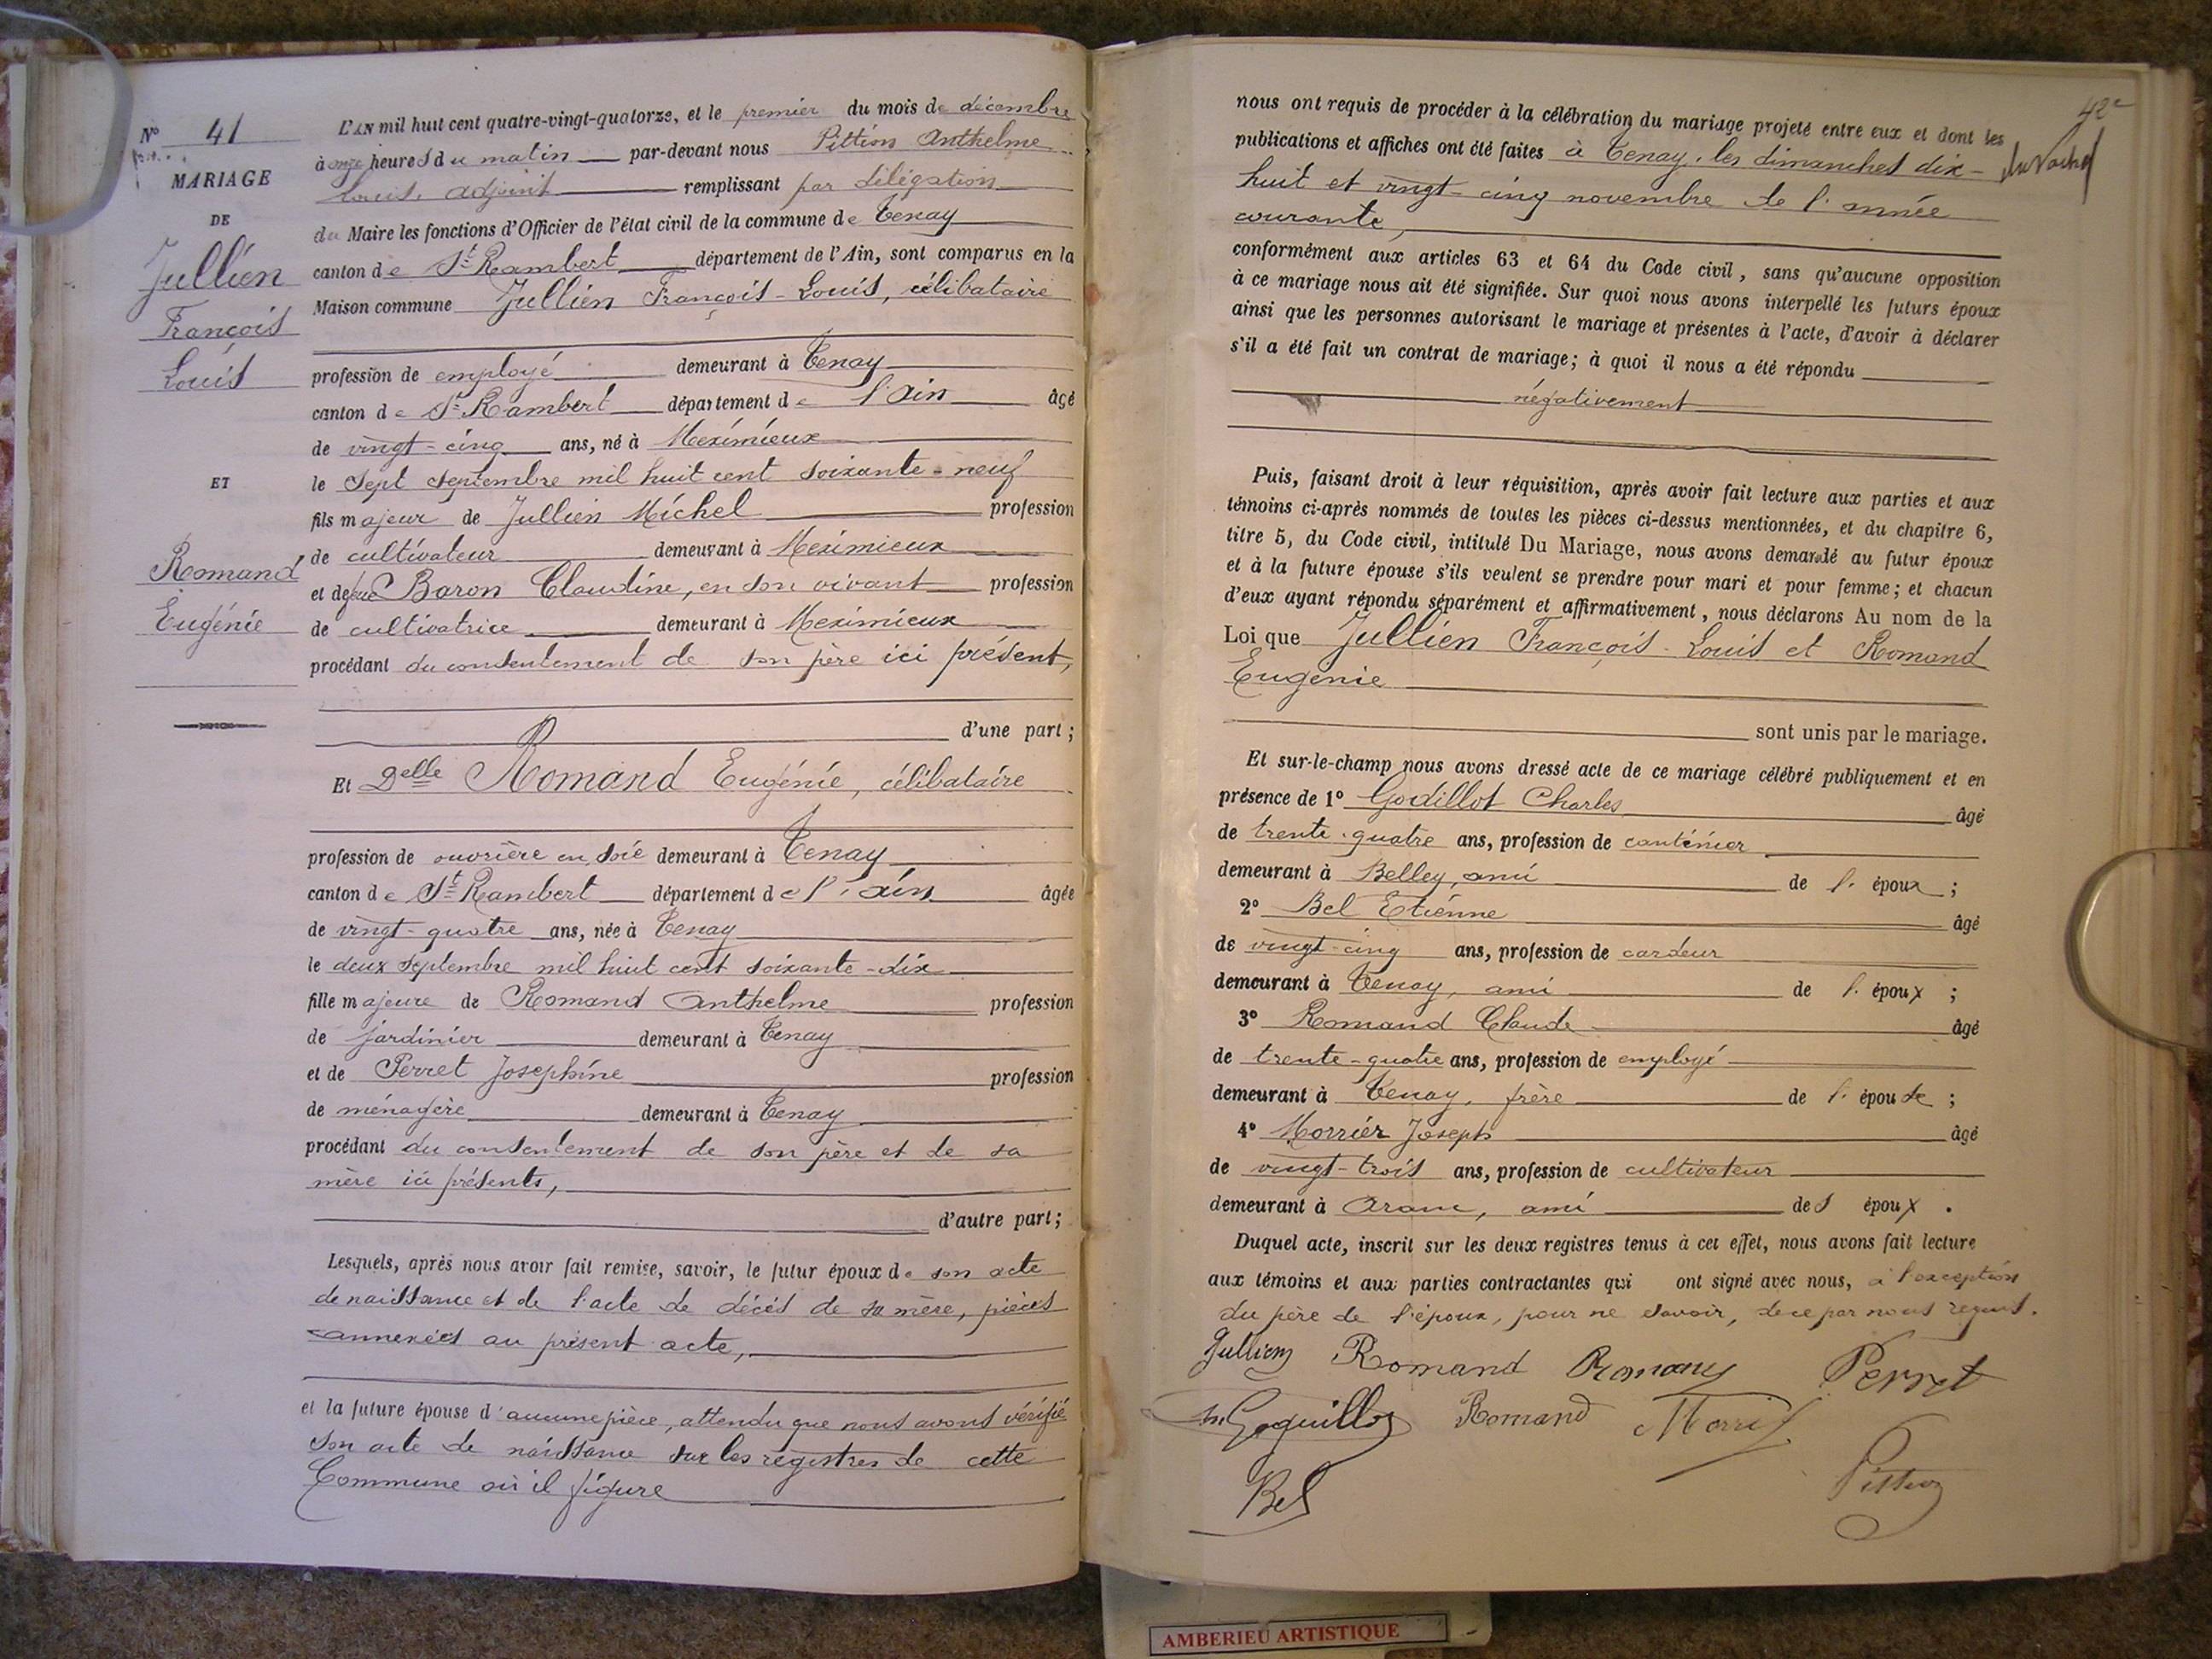 N° 41
MARIAGE
DE
Jullien
François
Louis
ET
Romand
Eugénie
L'AN mil huit cent quatre-vingt-quatorze, et le premier du mois de décembre
à onze heures du matin par-devant nous Pittion Anthelme
Louis, adjoint remplissant par délégation
du Maire les fonctions d'Officier de l'état civil de la commune de Tenay
canton de St Rambert département de l'Ain, sont comparus en la
Maison commune Jullien François-Louis, célibataire
profession de employé demeurant à Tenay
canton de St Rambert département de l'Ain âgé
de vingt-cinq ans, né à Meximieux
le sept septembre mil huit cent soixante-neuf
fils majeur de Jullien Michel profession
de cultivateur demeurant à Meximieux
et de feue Baron Claudine, en son vivant profession
de cultivatrice demeurant à Meximieux
procédant du consentement de son père ici présent,
d'une part;
Et Delle Romand Eugénie, célibataire
profession de ouvrière en soie demeurant à Tenay
canton de St Rambert département de l'Ain âgée
de vingt-quatre ans, née à Tenay
le deux septembre mil huit cent soixante-dix
fille majeure de Romand Anthelme profession
de jardinier demeurant à Tenay
et de Perret Josephine profession
de ménagère demeurant à Tenay
procédant du consentement de son père et de sa
mère ici présents,
d'autre part;
Lesquels, après nous avoir fait remise, savoir, le futur époux de son acte
de naissance et de l'acte de décès de sa mère, pièces
annexées au présent acte,
et la future épouse d'aucune pièce, attendu que nous avons vérifié
son acte de naissance sur les registres de cette
Commune où il figure
42e
nous ont requis de procéder à la célébration du mariage projeté entre eux et dont les
publications et affiches ont été faites à Tenay, les dimanches dix-
huit et vingt-cinq novembre de l'année
courante,
conformément aux articles 63 et 64 du Code civil, sans qu'aucune opposition
à ce mariage nous ait été signifiée. Sur quoi nous avons interpellé les futurs époux
ainsi que les personnes autorisant le mariage et présentes à l'acte, d'avoir à déclarer
s'il a été fait un contrat de mariage; à quoi il nous a été répondu
négativement
Puis, faisant droit à leur réquisition, après avoir fait lecture aux parties et aux
témoins ci-après nommés de toutes les pièces ci-dessus mentionnées, et du chapitre 6,
titre 5, du Code civil, intitulé Du Mariage, nous avons demandé au futur époux
et à la future épouse s'ils veulent se prendre pour mari et pour femme; et chacun
d'eux ayant répondu séparément et affirmativement, nous déclarons Au nom de la
Loi que Jullien François-Louis et Romand
Eugénie
sont unis par le mariage.
Et sur-le-champ nous avons dressé acte de ce mariage célébré publiquement et en
présence de 1° Godillot Charles âgé
de trente-quatre ans, profession de cantinier
demeurant à Belley, ami de l'époux;
2° Bel Etienne âgé
de vingt-cinq ans, profession de cardeur
demeurant à Tenay, ami de l'époux;
3° Romand Claude âgé
de trente-quatre ans, profession de employé
demeurant à Tenay, frère de l'épouse;
4° Morrier Joseph âgé
de vingt-trois ans, profession de cultivateur
demeurant à Aranc, ami des époux.
Duquel acte, inscrit sur les deux registres tenus à cet effet, nous avons fait lecture
aux témoins et aux parties contractantes qui ont signé avec nous, à l'exception
du père de l'époux, pour ne savoir, de ce par nous requis.
Jullien Romand Romand Perret
Romand
Bel Pittion
AMBERIEU ARTISTIQUE